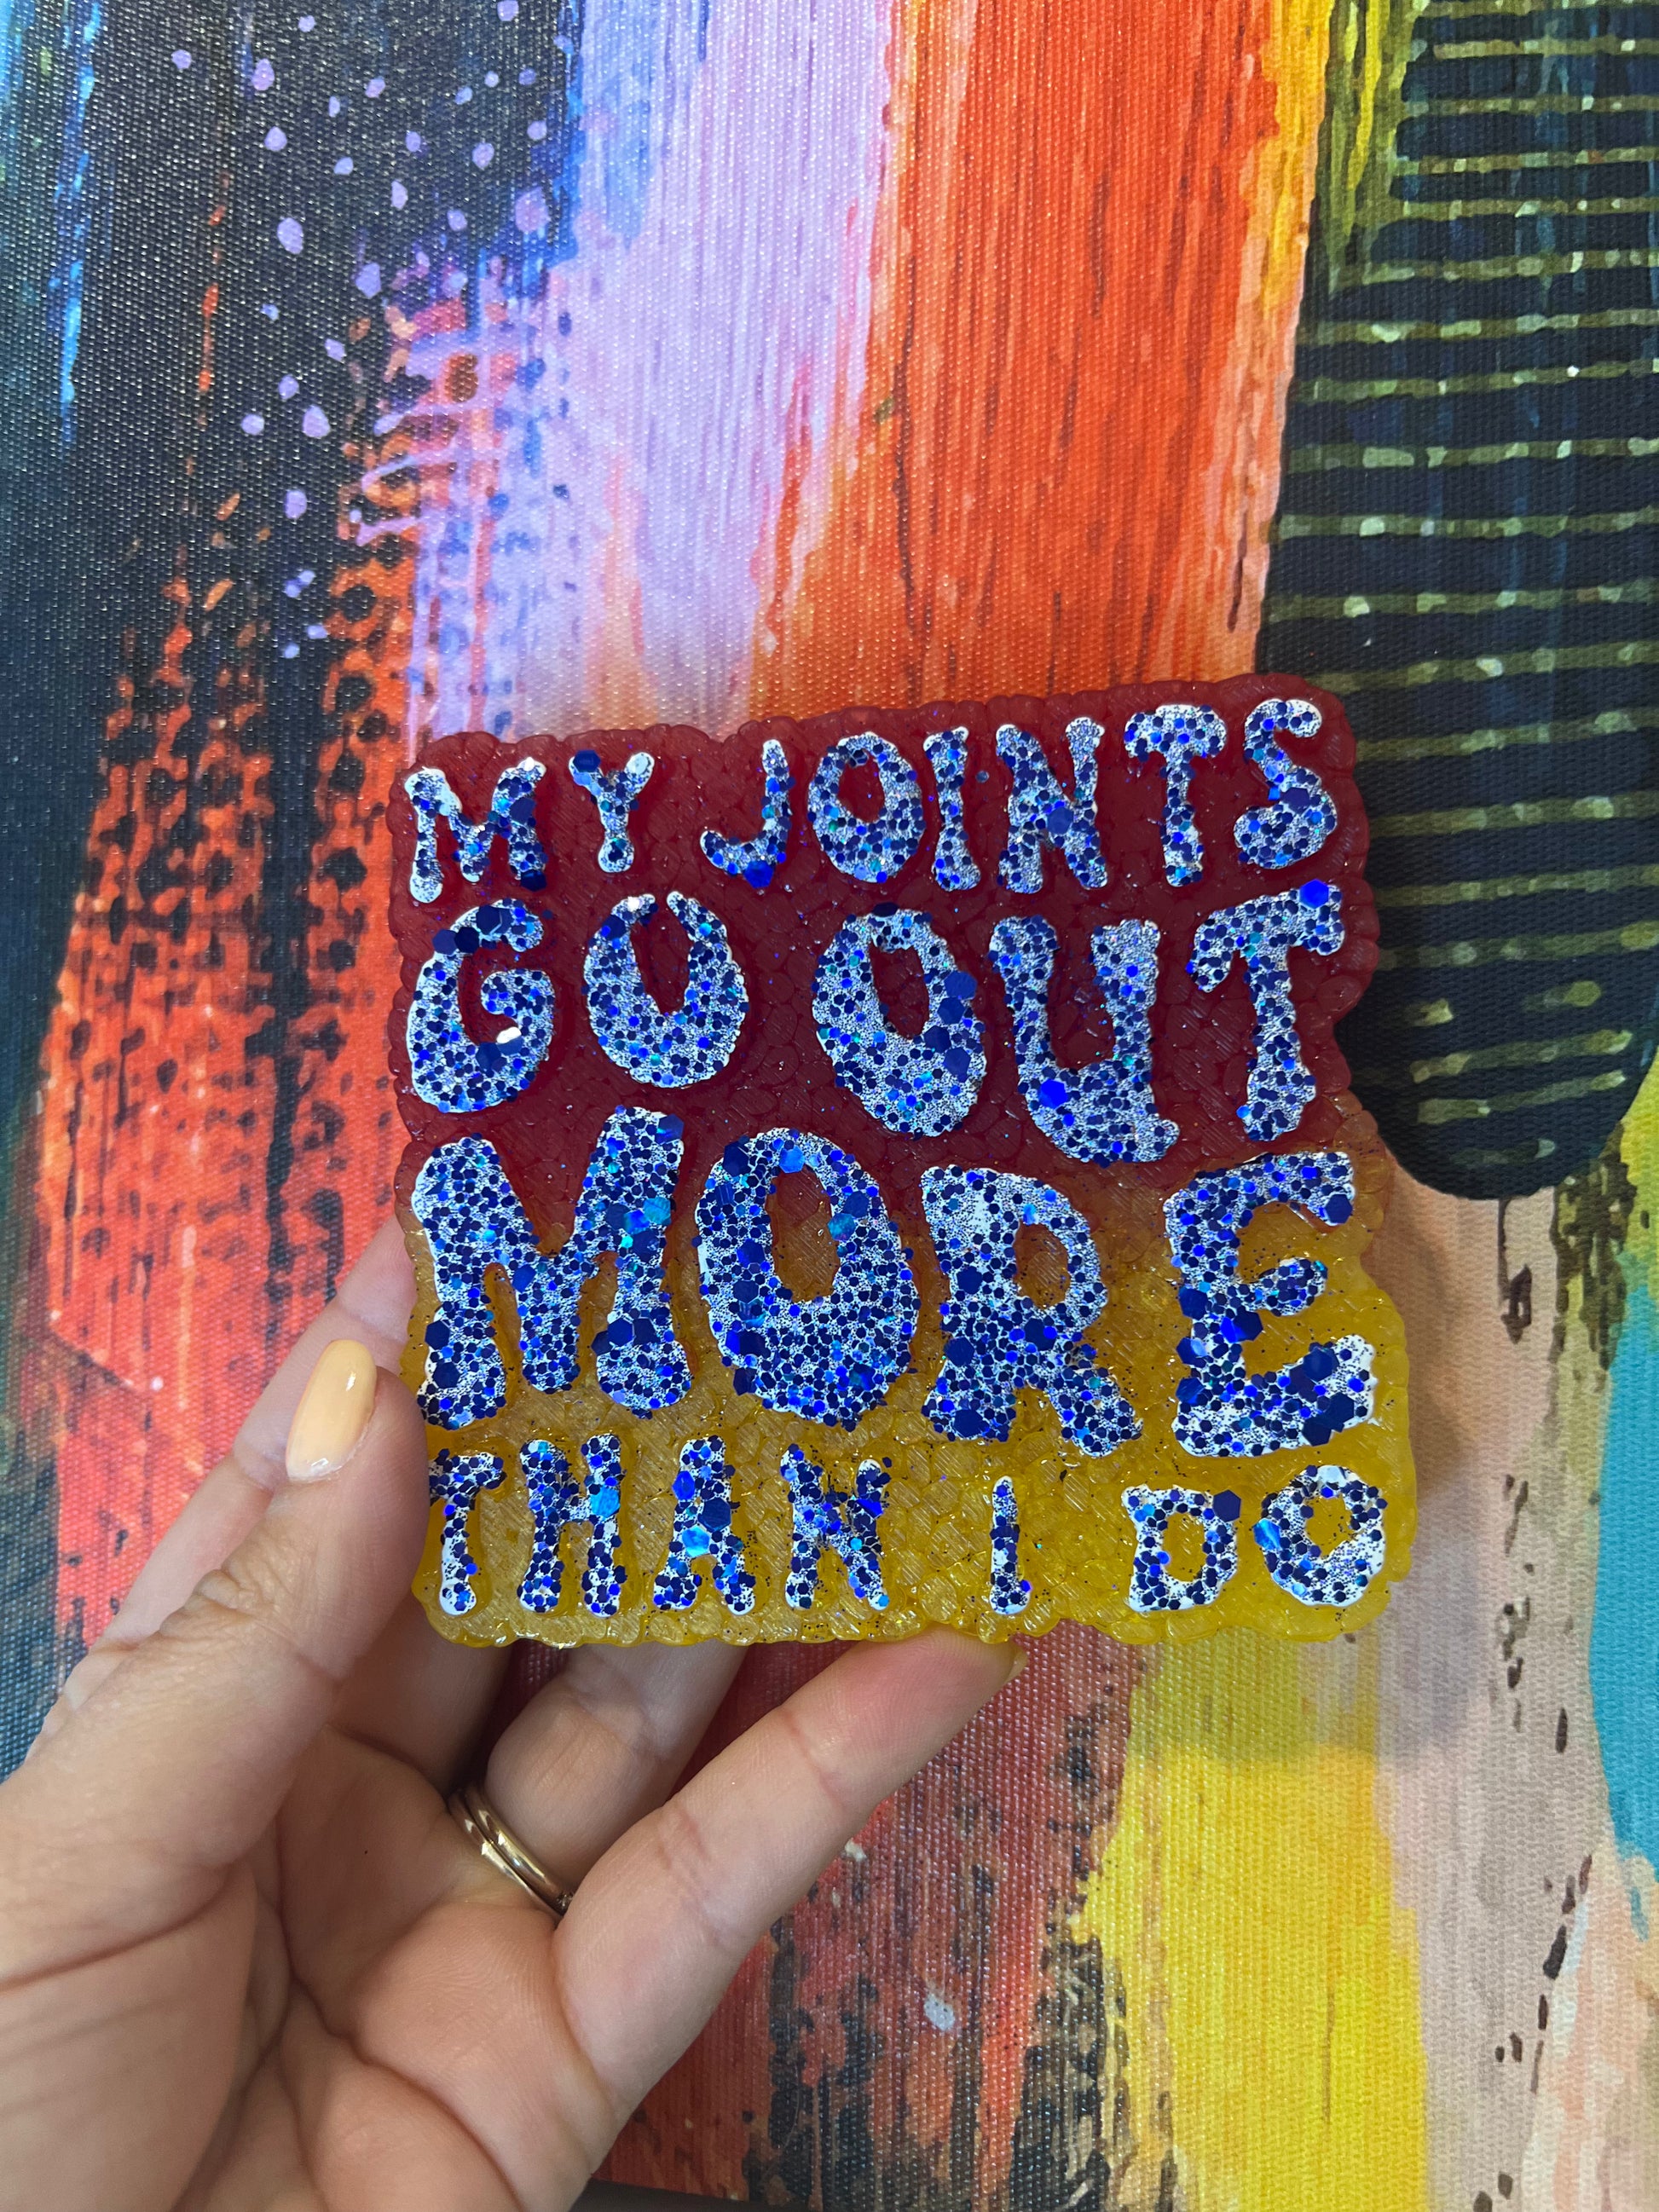 MY JOINTS
GO OUT
MORE
THAN I DO